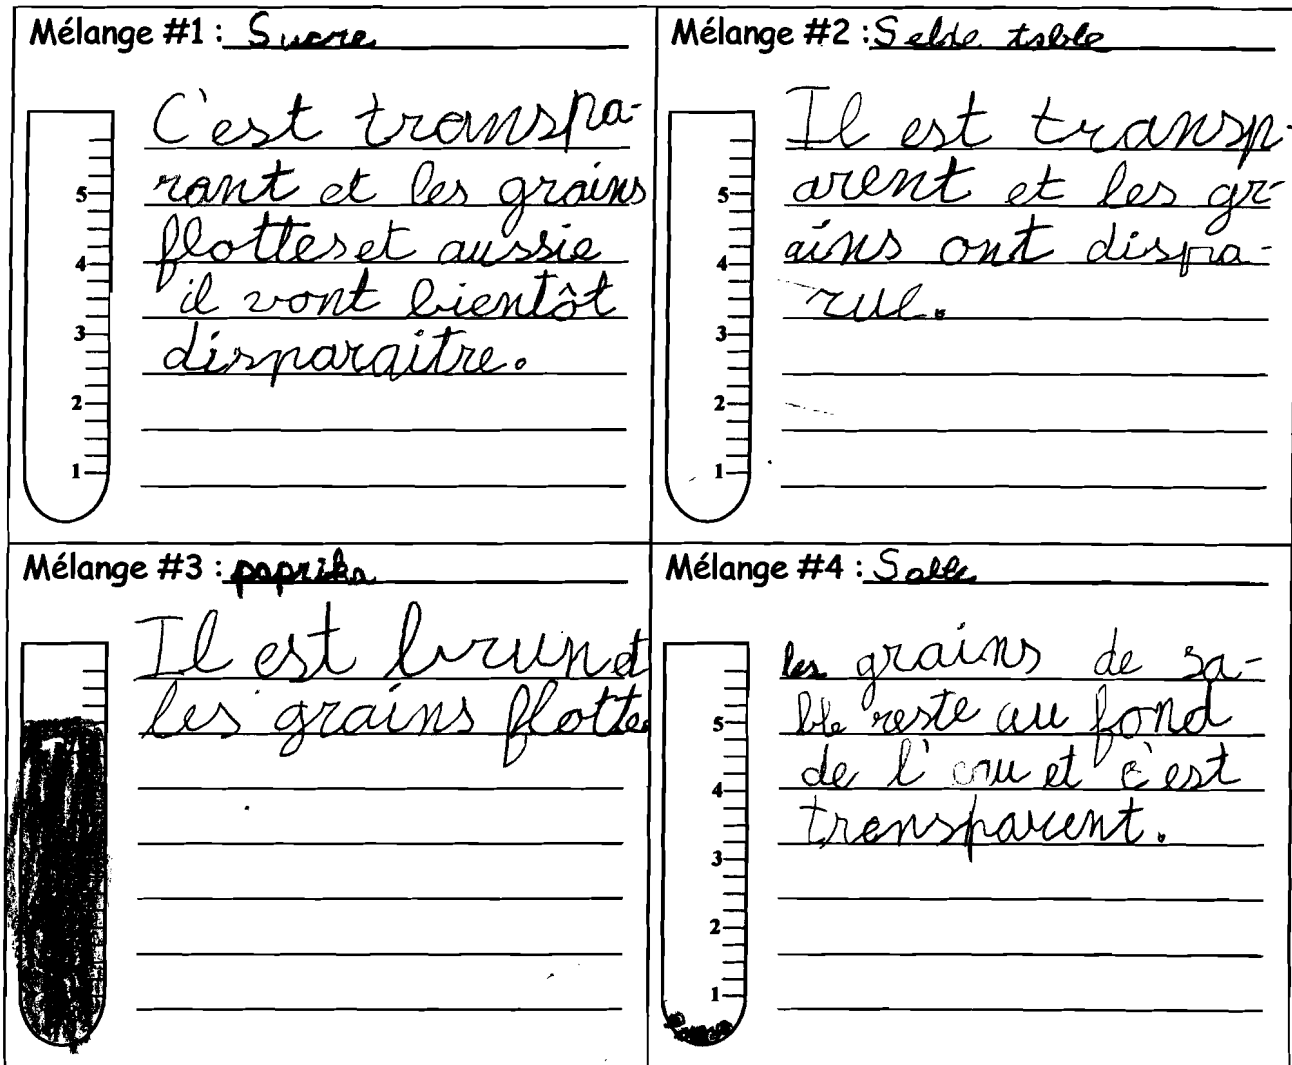 Mélange #1 : Sucre
C'est transpa-
rant et les grains
flottes et aussie
il vont bientôt
disparaitre.
5
4
3
2
1
Mélange #2 : Sel de table
Il est transp-
arent et les gr-
ains ont dispa-
rue.
5
4
3
2
1
Mélange #3 : paprika
Il est brun et
les grains flotte
Mélange #4 : Sable
les grains de sa-
ble reste au fond
de l'eau et c'est
transparent.
5
4
3
2
1